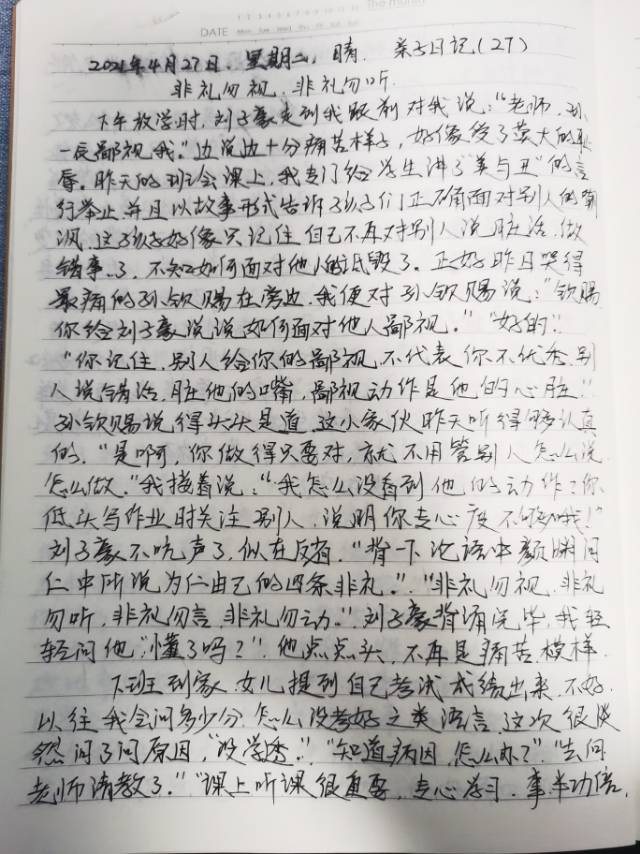 DATE
2021年4月27日. 星期二, 晴. 亲子日记(27)
非礼勿视. 非礼勿听.
下午放学时, 刘子豪走到我跟前对我说: "老师, 孙
一辰鄙视我." 边说边十分痛苦样子, 好像受了莫大的耻
辱. 昨天的班会课上, 我专门给学生讲了"美与丑"的言
行举止并且以故事形式告诉了孩子们正确面对别人的嘲
讽. 这孩子好像只记住自己不再对别人说脏话, 做
错事了, 不知如何面对他人的诋毁了. 正好昨日哭得
最痛的孙钦赐在旁边. 我便对孙钦赐说: "钦赐
你给刘子豪说说如何面对他人鄙视." "好的".
"你记住, 别人给你的鄙视, 不代表你不优秀. 别
人说错话, 脏他的嘴, 鄙视动作是他的心脏."
孙钦赐说得头头是道, 这小家伙昨天听得够认真
的. "是啊, 你做得只要对, 就不用管别人怎么说
怎么做." 我接着说: "我怎么没看到他的动作? 你
低头写作业时关注别人, 说明你专心度不够哦!"
刘子豪不吭声了, 似在反省. "背一下论语中颜渊问
仁中所说为仁由己的四条非礼." "非礼勿视, 非礼
勿听, 非礼勿言, 非礼勿动." 刘子豪背诵完毕, 我轻
轻问他"懂了吗?" 他点点头, 不再是痛苦模样.
下班到家, 女儿提到自己考试成绩出来, 不好.
以往我会问多少分, 怎么没考好之类语言, 这次很淡
然问了问原因, "没学透". "知道病因, 怎么办?" "去问
老师请教了." "课上听课很重要, 专心学习, 事半功倍.